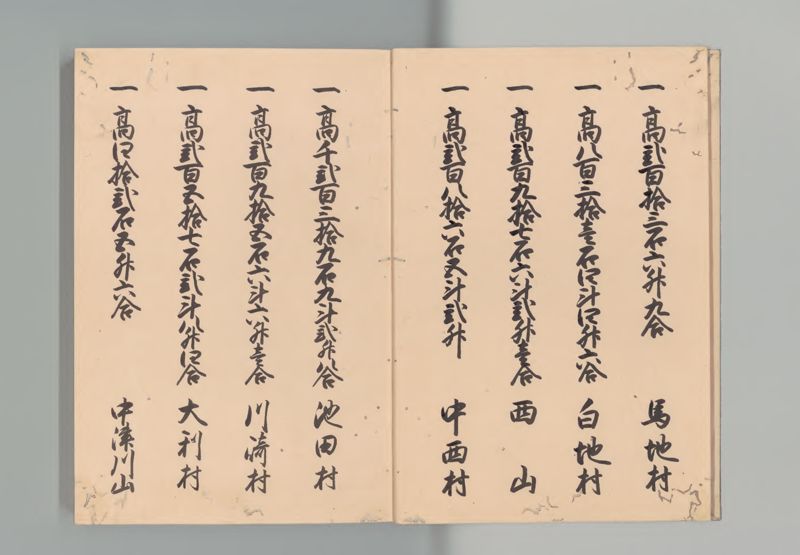 一高弐百拾三石六升九合 馬地村
一高八百三拾壱石四斗四升六合 白地村
一高弐百九拾七石六斗弐升壱合 西山
一高弐百八拾六石五斗弐升 中西村
一高千弐百三拾九石九斗弐升八合 池田村
一高弐百九拾五石六斗六升壱合 川崎村
一高弐百五拾七石弐斗八升四合 大利村
一高四拾弐石五升六合 中津川山